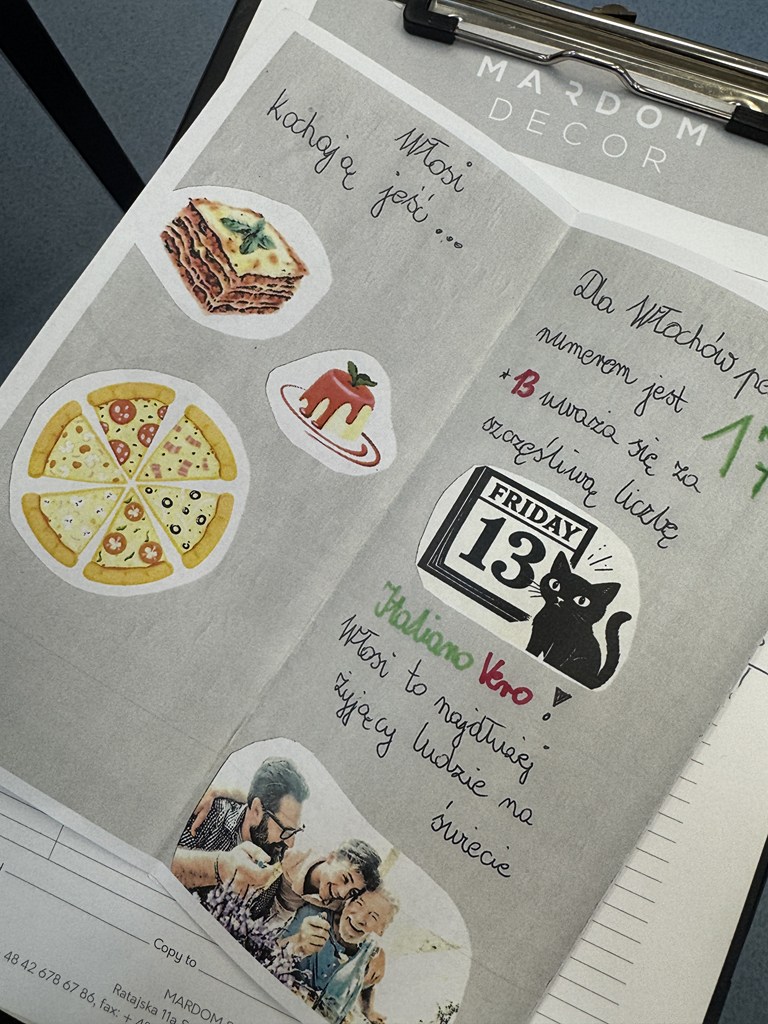 MARDOM
DECOR
Włosi
kochają jeść...
Dla Włochów pe
numerem jest 17
* 13 uważa się za
szczęśliwą liczbę
FRIDAY
13
Italiano Vero!
Włosi to najdłużej
żyjący ludzie na
świecie
Copy to
MARDOM
Ratajska 11a
48 42 678 67 86, fax: +